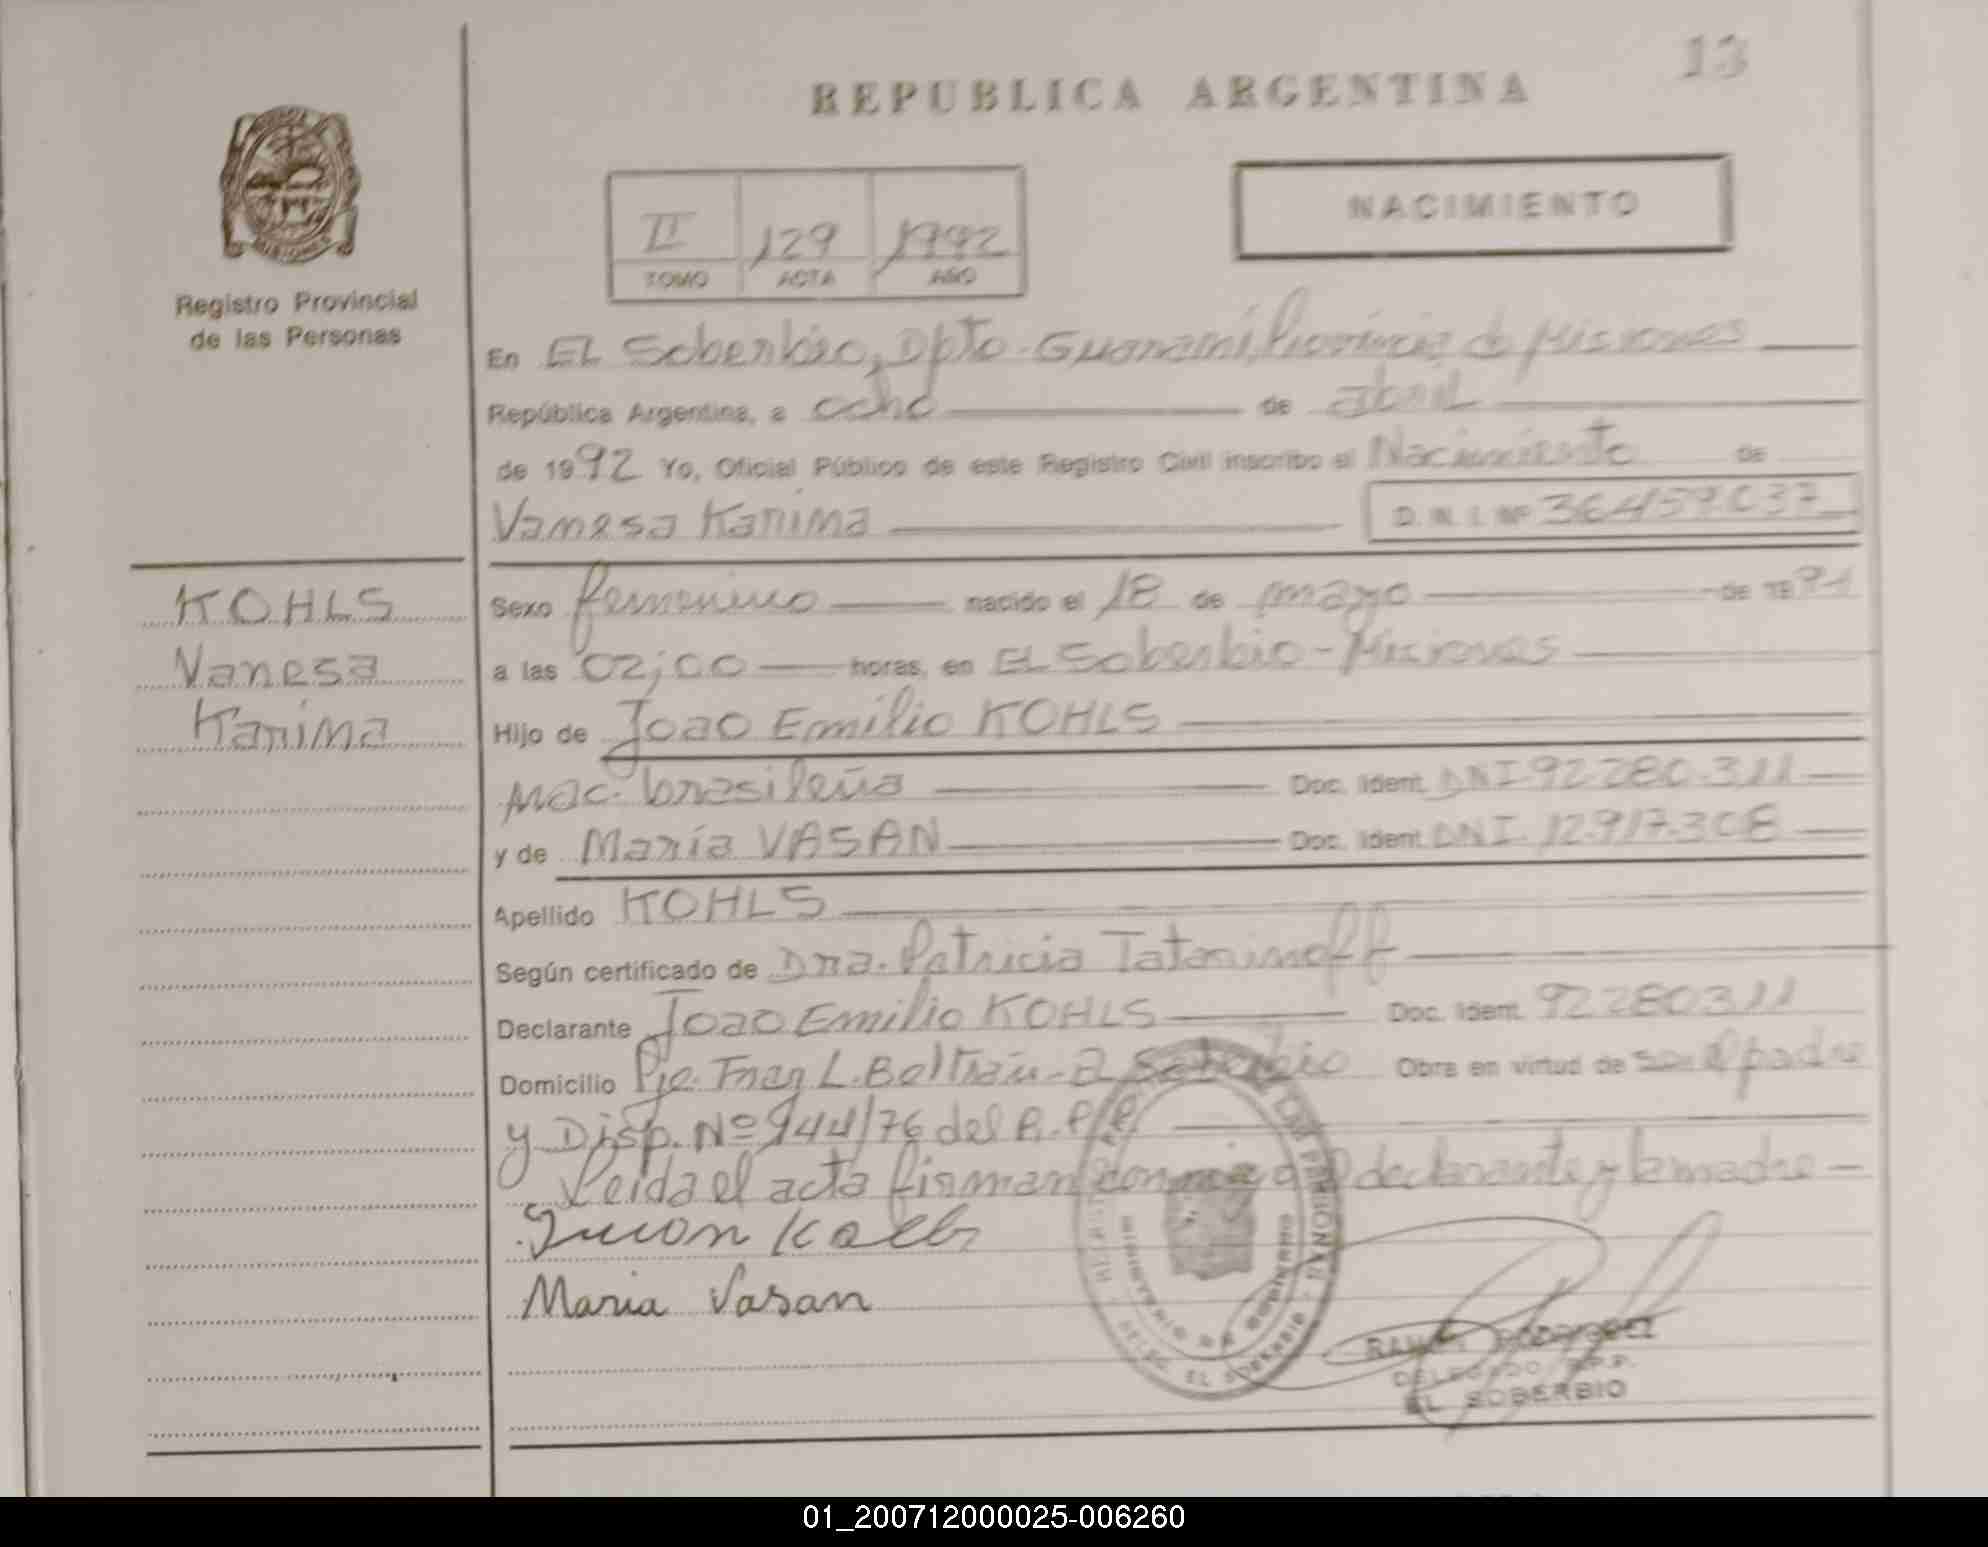 13
REPUBLICA ARGENTINA
NACIMIENTO
II 129 1992
TOMO ACTA AÑO
Registro Provincial
de las Personas
En EL Soberbio, Dpto. Guaraní, Provincia de Misiones
República Argentina, a ocho de abril
de 1992 Yo, Oficial Público de este Registro Civil inscribo el Nacimiento de
Vanesa Karina D.N.I. Nº 36457037
KOHLS
Vanesa
Karina
Sexo femenino nacido el 18 de mayo de 1991
a las 02;00 horas, en EL Soberbio - Misiones
Hijo de Joao Emilio KOHLS
Nac. brasileña Doc. Ident. DNI 92280.311
y de María VASAN Doc. Ident. DNI. 12.917.308
Apellido KOHLS
Según certificado de Dra. Patricia Tatarinoff
Declarante Joao Emilio KOHLS Doc. Ident. 92280311
Domicilio Pje. Fray L. Beltrán - El Soberbio Obra en virtud de ser el padre
y Disp. Nº 944/76 del R.P.P.
Leida el acta firman conmigo el declarante y la madre
Maria Vasan
MINISTERIO DE GOBIERNO
DELEG. EL SOBERBIO
RODRIGUEZ
DELEGADO R.P.P.
EL SOBERBIO
01_200712000025-006260